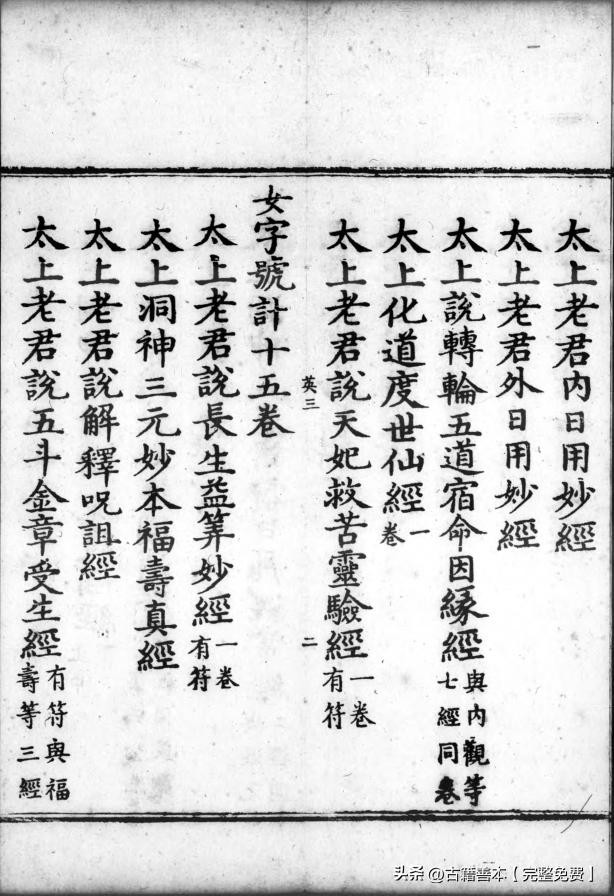 太上老君內日用妙經
太上老君外日用妙經
太上說轉輪五道宿命因緣經與內觀等七經同卷
太上化道度世仙經一卷
太上老君說天妃救苦靈驗經一卷有符
英三
二
女字號計十五卷
太上老君說長生益筭妙經一卷有符
太上洞神三元妙本福壽真經
太上老君說解釋呪詛經
太上老君說五斗金章受生經有符與福壽等三經
头条@古籍善本【完整免费】